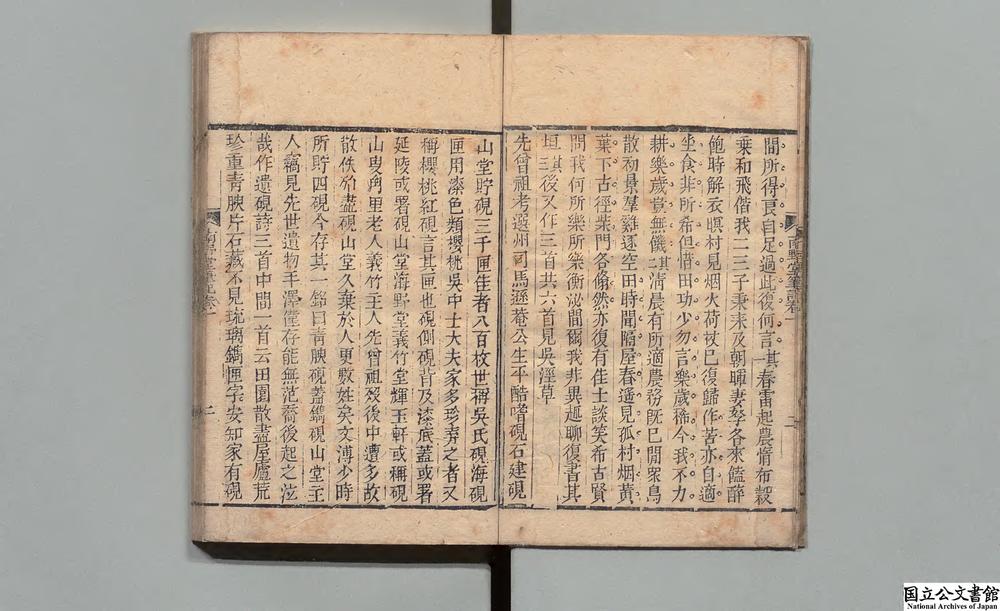 間所得良自足過此復何言其一春雷起農惰布穀
乗和飛偕我二三子秉耒及朝暉妻孥各來饁薜
飽時解衣暝村見烟火荷杖已復歸作苦亦自適
坐食非所希但惜田功少勿言樂歲稀今我不力
耕樂歲豈無饑其二清晨有所適農務旣已閒衆鳥
散初景羣雞逐空田時聞隔屋舂遙見孤村烟黄
葉下古徑柴門各翛然亦復有佳士談笑希古賢
問我何所樂所樂衡泌間爾我非異趣聊復書其
垣其三後又作三首共六首見吳涇草
先曾祖考選州司馬遜菴公生平酷嗜硯石建硯
南野堂筆記卷一
二
山堂貯硯三千匣佳者八百枚世稱吳氏硯海硯
匣用漆色類櫻桃吳中士大夫家多珍弆之者又
稱櫻桃紅硯言其匣也硯側硯背及漆底蓋或署
延陵或署硯山堂海野堂義竹堂輝玉軒或稱硯
山叟甪里老人義竹主人先曾祖歿後中遭多故
散佚殆盡硯山堂久棄於人更數姓矣文溥少時
所貯四硯今存其一銘曰青腴硯蓋鐫硯山堂主
人稿見先世遺物手澤僅存能無范喬後起之泣
哉作遺硯詩三首中間一首云田園散盡屋廬荒
珍重青腴片石藏不見琉璃鐫匣字安知家有硯
南野堂筆記卷一
二
国立公文書館
National Archives of Japan